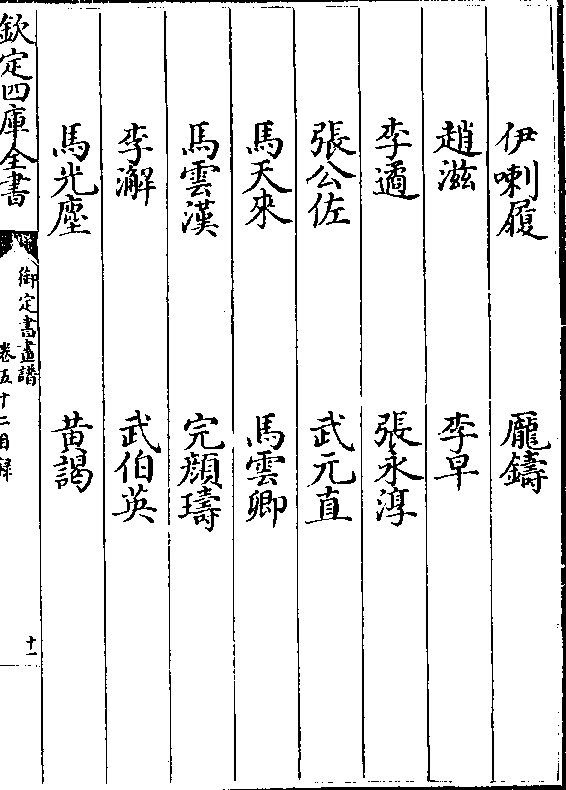 伊喇履　龎鑄
趙滋　李早
李遹　張永淳
張公佐　武元直
馬天來　馬雲卿
馬雲漢　完顏璹
李澥　武伯英
馬光塵　黄謁
欽定四庫全書
御定書畫譜
卷五十二目錄
十一